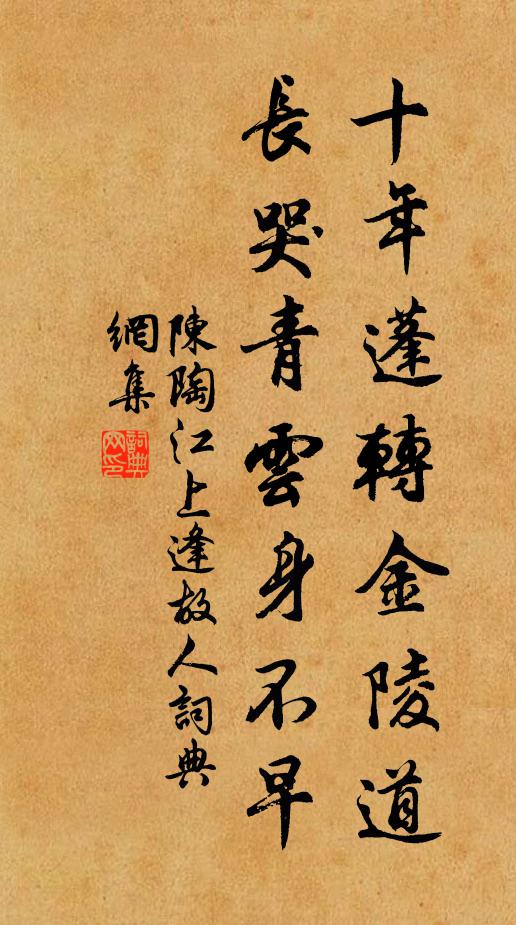 十年蓬轉金陵道
長哭青雲身不早
陳陶江上逢故人詞典
網集
詞典
网印